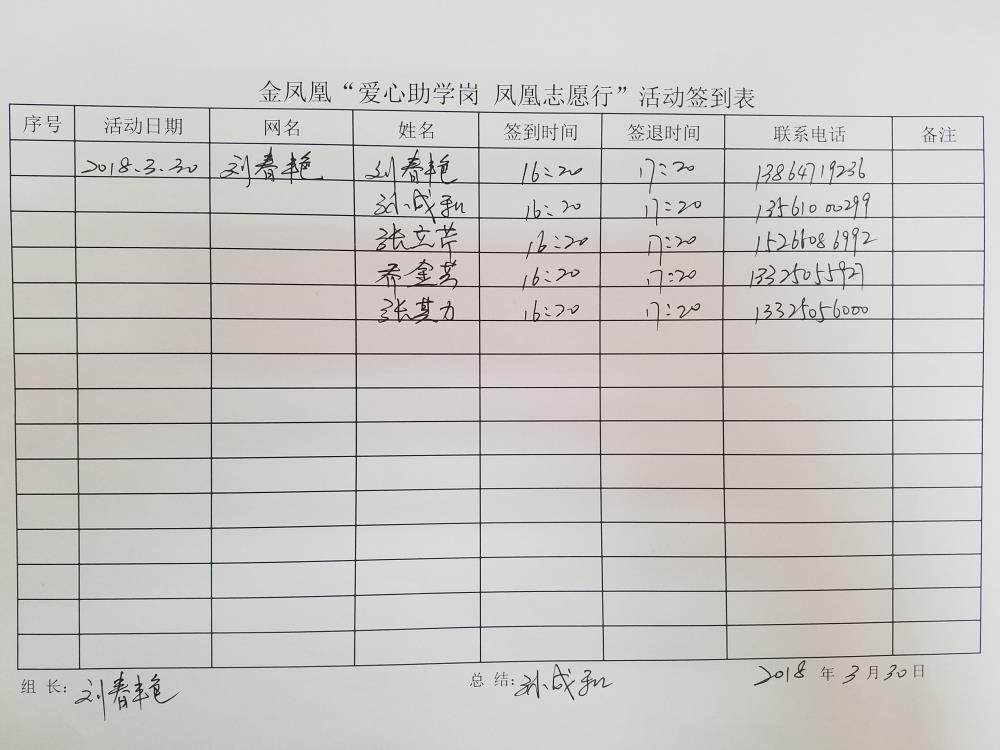 金凤凰“爱心助学岗 凤凰志愿行”活动签到表
序号 活动日期 网名 姓名 签到时间 签退时间 联系电话 备注
2018.3.30 刘春艳 刘春艳 16:20 17:20 13864719236
孙成和 16:20 17:20 13561000299
张立芹 16:20 17:20 15266086992
乔金芳 16:20 17:20 13325055927
张其力 16:20 17:20 13325056000
组 长: 刘春艳 总 结: 孙成和 2018 年 3 月 30 日